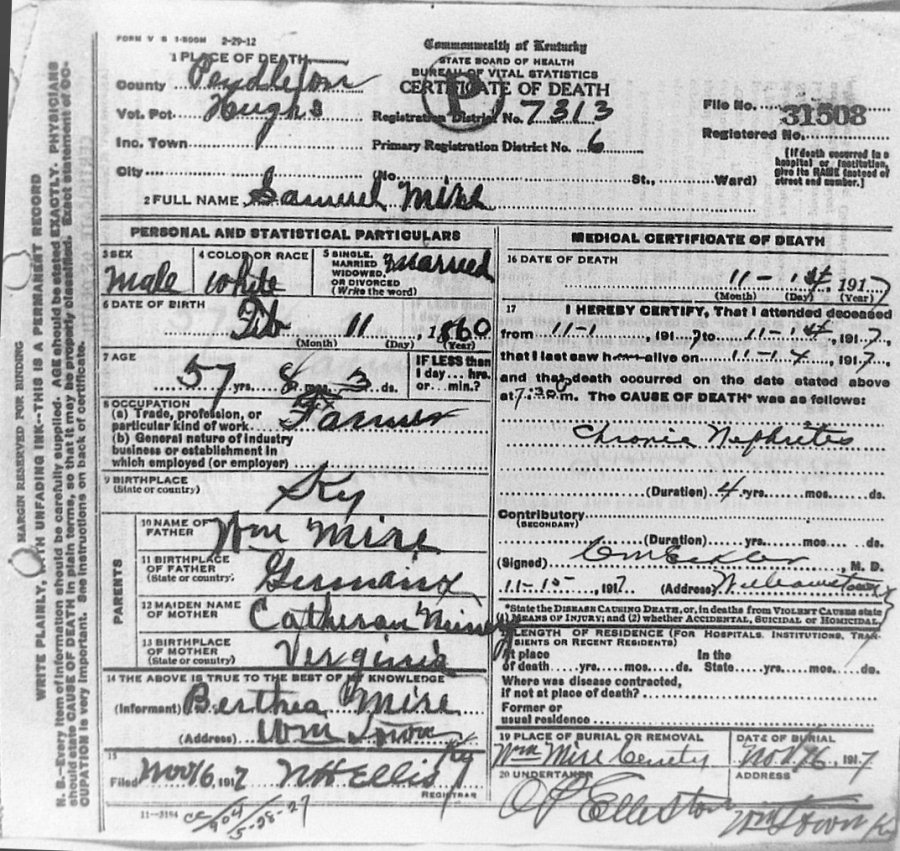 FORM V S 1-500M 2-29-12
Commonwealth of Kentucky
STATE BOARD OF HEALTH
BUREAU OF VITAL STATISTICS
CERTIFICATE OF DEATH
1 PLACE OF DEATH
County Pendleton
Vot. Pct. Hughs
Inc. Town
City
Registration District No. 7313
Primary Registration District No. 6
File No. 31508
Registered No.
(No. St., Ward)
[If death occurred in a hospital or institution, give its NAME instead of street and number.]
2 FULL NAME Samuel Mire
PERSONAL AND STATISTICAL PARTICULARS
3 SEX
Male
4 COLOR OR RACE
white
5 SINGLE, MARRIED WIDOWED, OR DIVORCED (Write the word)
Married
6 DATE OF BIRTH
Feb 11 1860
(Month) (Day) (Year)
7 AGE
57 yrs. 8 mos. 3 ds.
IF LESS than 1 day... hrs. or... min.?
8 OCCUPATION
(a) Trade, profession, or particular kind of work Farmer
(b) General nature of industry business or establishment in which employed (or employer)
9 BIRTHPLACE
(State or country)
Ky
PARENTS
10 NAME OF FATHER
Wm Mire
11 BIRTHPLACE OF FATHER
(State or country)
Germany
12 MAIDEN NAME OF MOTHER
Catheran
13 BIRTHPLACE OF MOTHER
(State or country)
Verginia
14 THE ABOVE IS TRUE TO THE BEST OF MY KNOWLEDGE
(Informant) Berthea Mire
(Address) Wm Town Ky
15
Filed Nov 16, 1917 N H Ellis
REGISTRAR
11-3184
5-28-27
MEDICAL CERTIFICATE OF DEATH
16 DATE OF DEATH
11-14 1917
(Month) (Day) (Year)
17 I HEREBY CERTIFY, That I attended deceased
from 11-1, 1917 to 11-14, 1917,
that I last saw him alive on 11-14, 1917,
and that death occurred on the date stated above
at 7.30 m. The CAUSE OF DEATH* was as follows:
Chronic Nephretes
(Duration) 4 yrs. mos. ds.
Contributory
(SECONDARY)
(Duration) yrs. mos. ds.
(Signed) C M Eckler, M. D.
11-15, 1917 (Address) Williamstown Ky
*State the DISEASE CAUSING DEATH, or, in deaths from VIOLENT CAUSES state
MEANS OF INJURY; and (2) whether ACCIDENTAL, SUICIDAL or HOMICIDAL.
LENGTH OF RESIDENCE (FOR HOSPITALS, INSTITUTIONS, TRANSIENTS OR RECENT RESIDENTS)
At place of death yrs. mos. ds. In the State yrs. mos. ds.
Where was disease contracted,
if not at place of death?
Former or
usual residence
19 PLACE OF BURIAL OR REMOVAL
Wm Mire Cemetery
DATE OF BURIAL
Nov. 16, 1917
20 UNDERTAKER
O P Elleston
ADDRESS
Wmstown Ky
MARGIN RESERVED FOR BINDING
WRITE PLAINLY, WITH UNFADING INK--THIS IS A PERMANENT RECORD
N. B.--Every item of information should be carefully supplied. AGE should be stated EXACTLY. PHYSICIANS
should state CAUSE OF DEATH in plain terms, so that it may be properly classified. Exact statement of OC-
CUPATION is very important. See instructions on back of certificate.